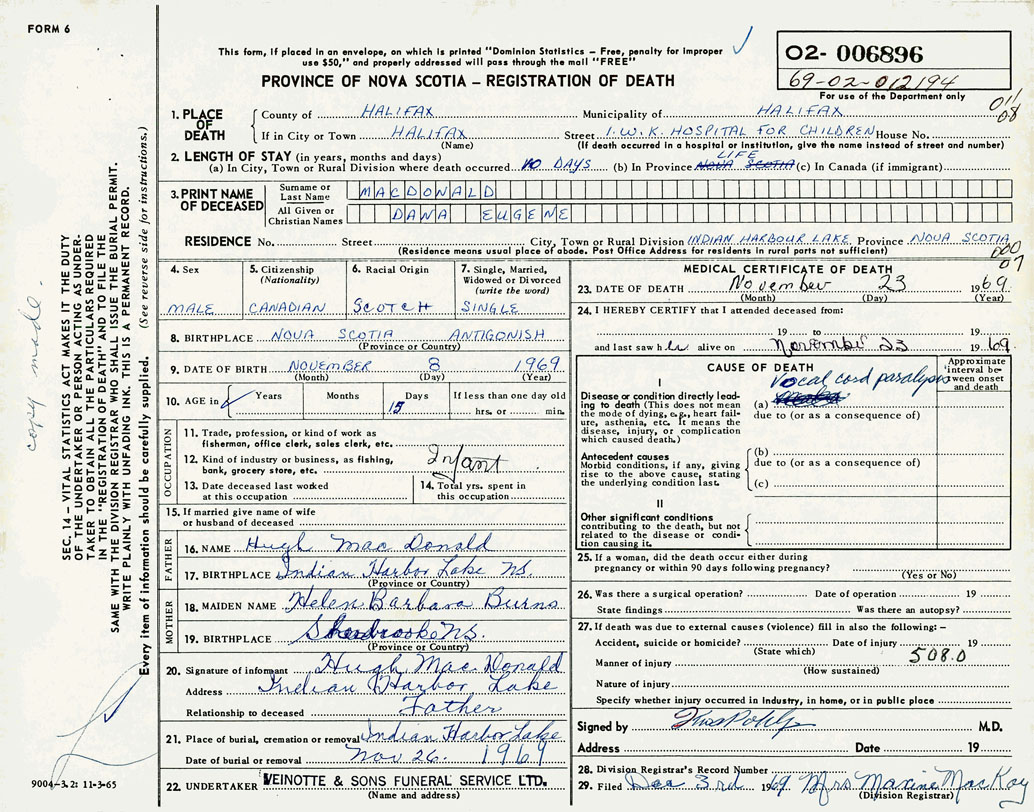 FORM 6
This form, if placed in an envelope, on which is printed "Dominion Statistics – Free, penalty for improper
use $50," and properly addressed will pass through the mail "FREE"
PROVINCE OF NOVA SCOTIA – REGISTRATION OF DEATH
02- 006896
69-02-012194
For use of the Department only
1. PLACE OF DEATH
County of HALIFAX Municipality of HALIFAX
011 08
If in City or Town HALIFAX Street I.W.K. HOSPITAL FOR CHILDREN House No.
(Name) (If death occurred in a hospital or institution, give the name instead of street and number)
2. LENGTH OF STAY (in years, months and days) LIFE
(a) In City, Town or Rural Division where death occurred 10 DAYS (b) In Province NOVA SCOTIA (c) In Canada (if immigrant)
3. PRINT NAME OF DECEASED
Surname or Last Name MACDONALD
All Given or Christian Names DANA EUGENE
RESIDENCE No. Street City, Town or Rural Division INDIAN HARBOUR LAKE Province NOVA SCOTIA
(Residence means usual place of abode. Post Office Address for residents in rural parts not sufficient)
000 07
4. Sex
MALE
5. Citizenship
(Nationality)
CANADIAN
6. Racial Origin
SCOTCH
7. Single, Married,
Widowed or Divorced
(write the word)
SINGLE
8. BIRTHPLACE NOVA SCOTIA ANTIGONISH
(Province or Country)
9. DATE OF BIRTH NOVEMBER 8 1969
(Month) (Day) (Year)
10. AGE in Years Months Days If less than one day old
15 hrs. or min.
OCCUPATION
11. Trade, profession, or kind of work as
fisherman, office clerk, sales clerk, etc.
12. Kind of industry or business, as fishing,
bank, grocery store, etc. Infant
13. Date deceased last worked
at this occupation
14. Total yrs. spent in
this occupation
15. If married give name of wife
or husband of deceased
FATHER
16. NAME Hugh Mac Donald
17. BIRTHPLACE Indian Harbor Lake NS.
(Province or Country)
MOTHER
18. MAIDEN NAME Helen Barbara Burns
19. BIRTHPLACE Sherbrooke NS.
(Province or Country)
20. Signature of informant Hugh Mac Donald
Address Indian Harbor Lake
Relationship to deceased Father
21. Place of burial, cremation or removal Indian Harbor Lake
Date of burial or removal Nov 26. 1969
22. UNDERTAKER VEINOTTE & SONS FUNERAL SERVICE LTD.
(Name and address)
MEDICAL CERTIFICATE OF DEATH
23. DATE OF DEATH November 23 1969.
(Month) (Day) (Year)
24. I HEREBY CERTIFY that I attended deceased from:
19 to 19
and last saw h alive on November 23 1969
CAUSE OF DEATH
Approximate
interval be-
tween onset
and death
I
Vocal cord paralysis
Disease or condition directly lead-
ing to death (This does not
mean the mode of dying, e.g., heart fail-
ure, asthenia, etc. It means the
disease, injury, or complication
which caused death.)
(a)
due to (or as a consequence of)
Antecedent causes
Morbid conditions, if any, giving
rise to the above cause, stating
the underlying condition last.
(b)
due to (or as a consequence of)
(c)
II
Other significant conditions
contributing to the death, but not
related to the disease or condi-
tion causing it.
25. If a woman, did the death occur either during
pregnancy or within 90 days following pregnancy?
(Yes or No)
26. Was there a surgical operation? Date of operation 19
State findings Was there an autopsy?
27. If death was due to external causes (violence) fill in also the following:–
Accident, suicide or homicide? Date of injury 19
(State which) 508.0
Manner of injury
(How sustained)
Nature of injury
Specify whether injury occurred in industry, in home, or in public place
Signed by M.D.
Address Date 19
28. Division Registrar's Record Number
29. Filed Dec 3rd 1969 Mrs Maxine MacKay
(Division Registrar)
SEC. 14 – VITAL STATISTICS ACT MAKES IT THE DUTY
OF THE UNDERTAKER OR PERSON ACTING AS UNDER-
TAKER TO OBTAIN ALL THE PARTICULARS REQUIRED
IN THE "REGISTRATION OF DEATH" AND TO FILE THE
SAME WITH THE DIVISION REGISTRAR WHO SHALL ISSUE THE BURIAL PERMIT.
WRITE PLAINLY WITH UNFADING INK. THIS IS A PERMANENT RECORD.
Every item of information should be carefully supplied. (See reverse side for instructions.)
copy made.
9004-3.2: 11-3-65